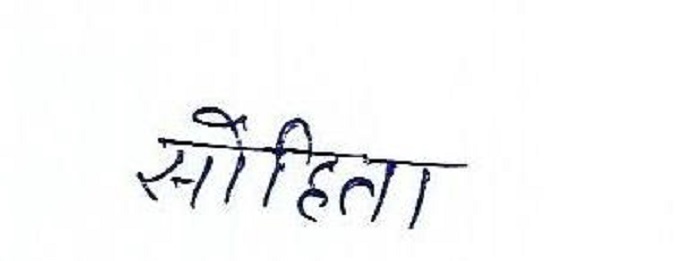 सौहिता